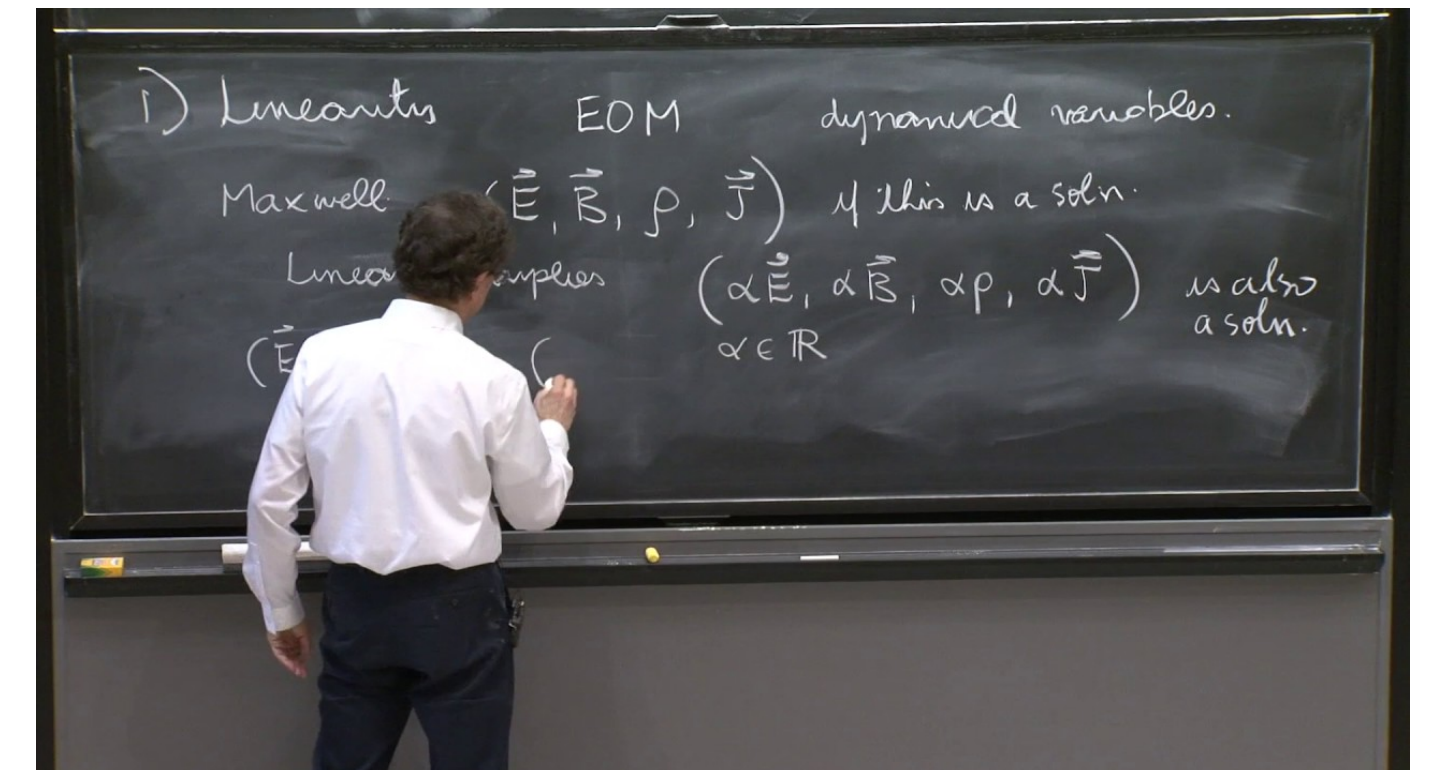 1) Linearity EOM dynamical variables.
Maxwell (E⃗, B⃗, ρ, J⃗) if this is a soln.
Linea mplies (αE⃗, αB⃗, αρ, αJ⃗) is also
a soln.
(E⃗ ( α ∈ ℝ